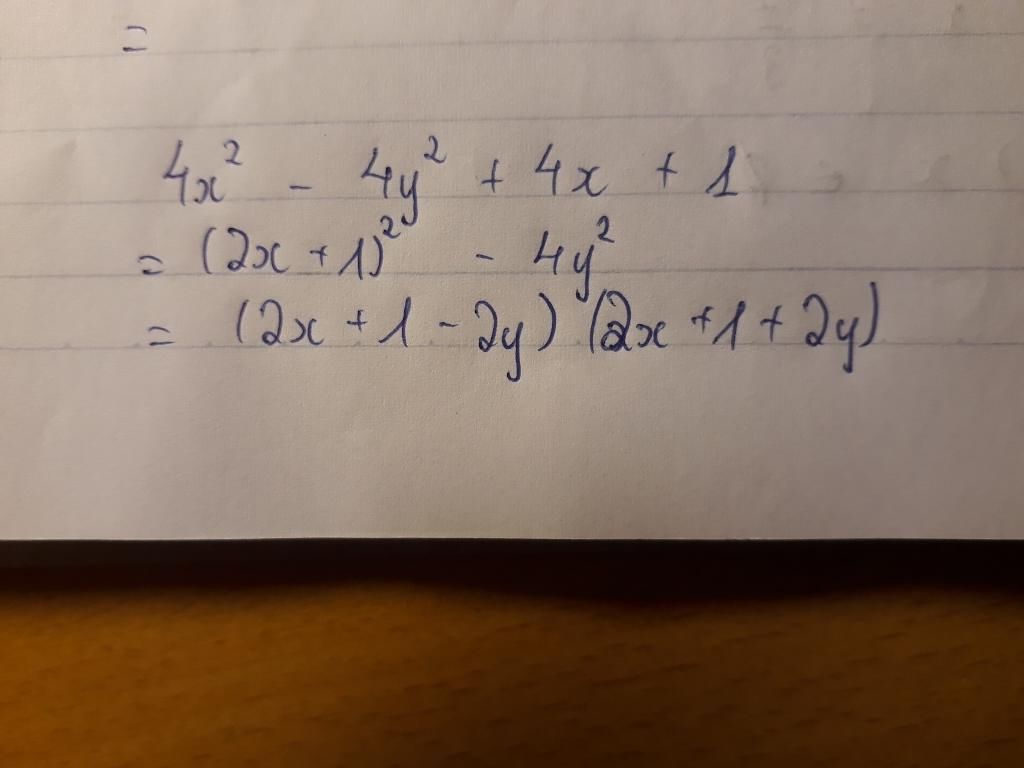 =
4x² - 4y² + 4x + 1
= (2x + 1)² - 4y²
= (2x + 1 - 2y) (2x + 1 + 2y)